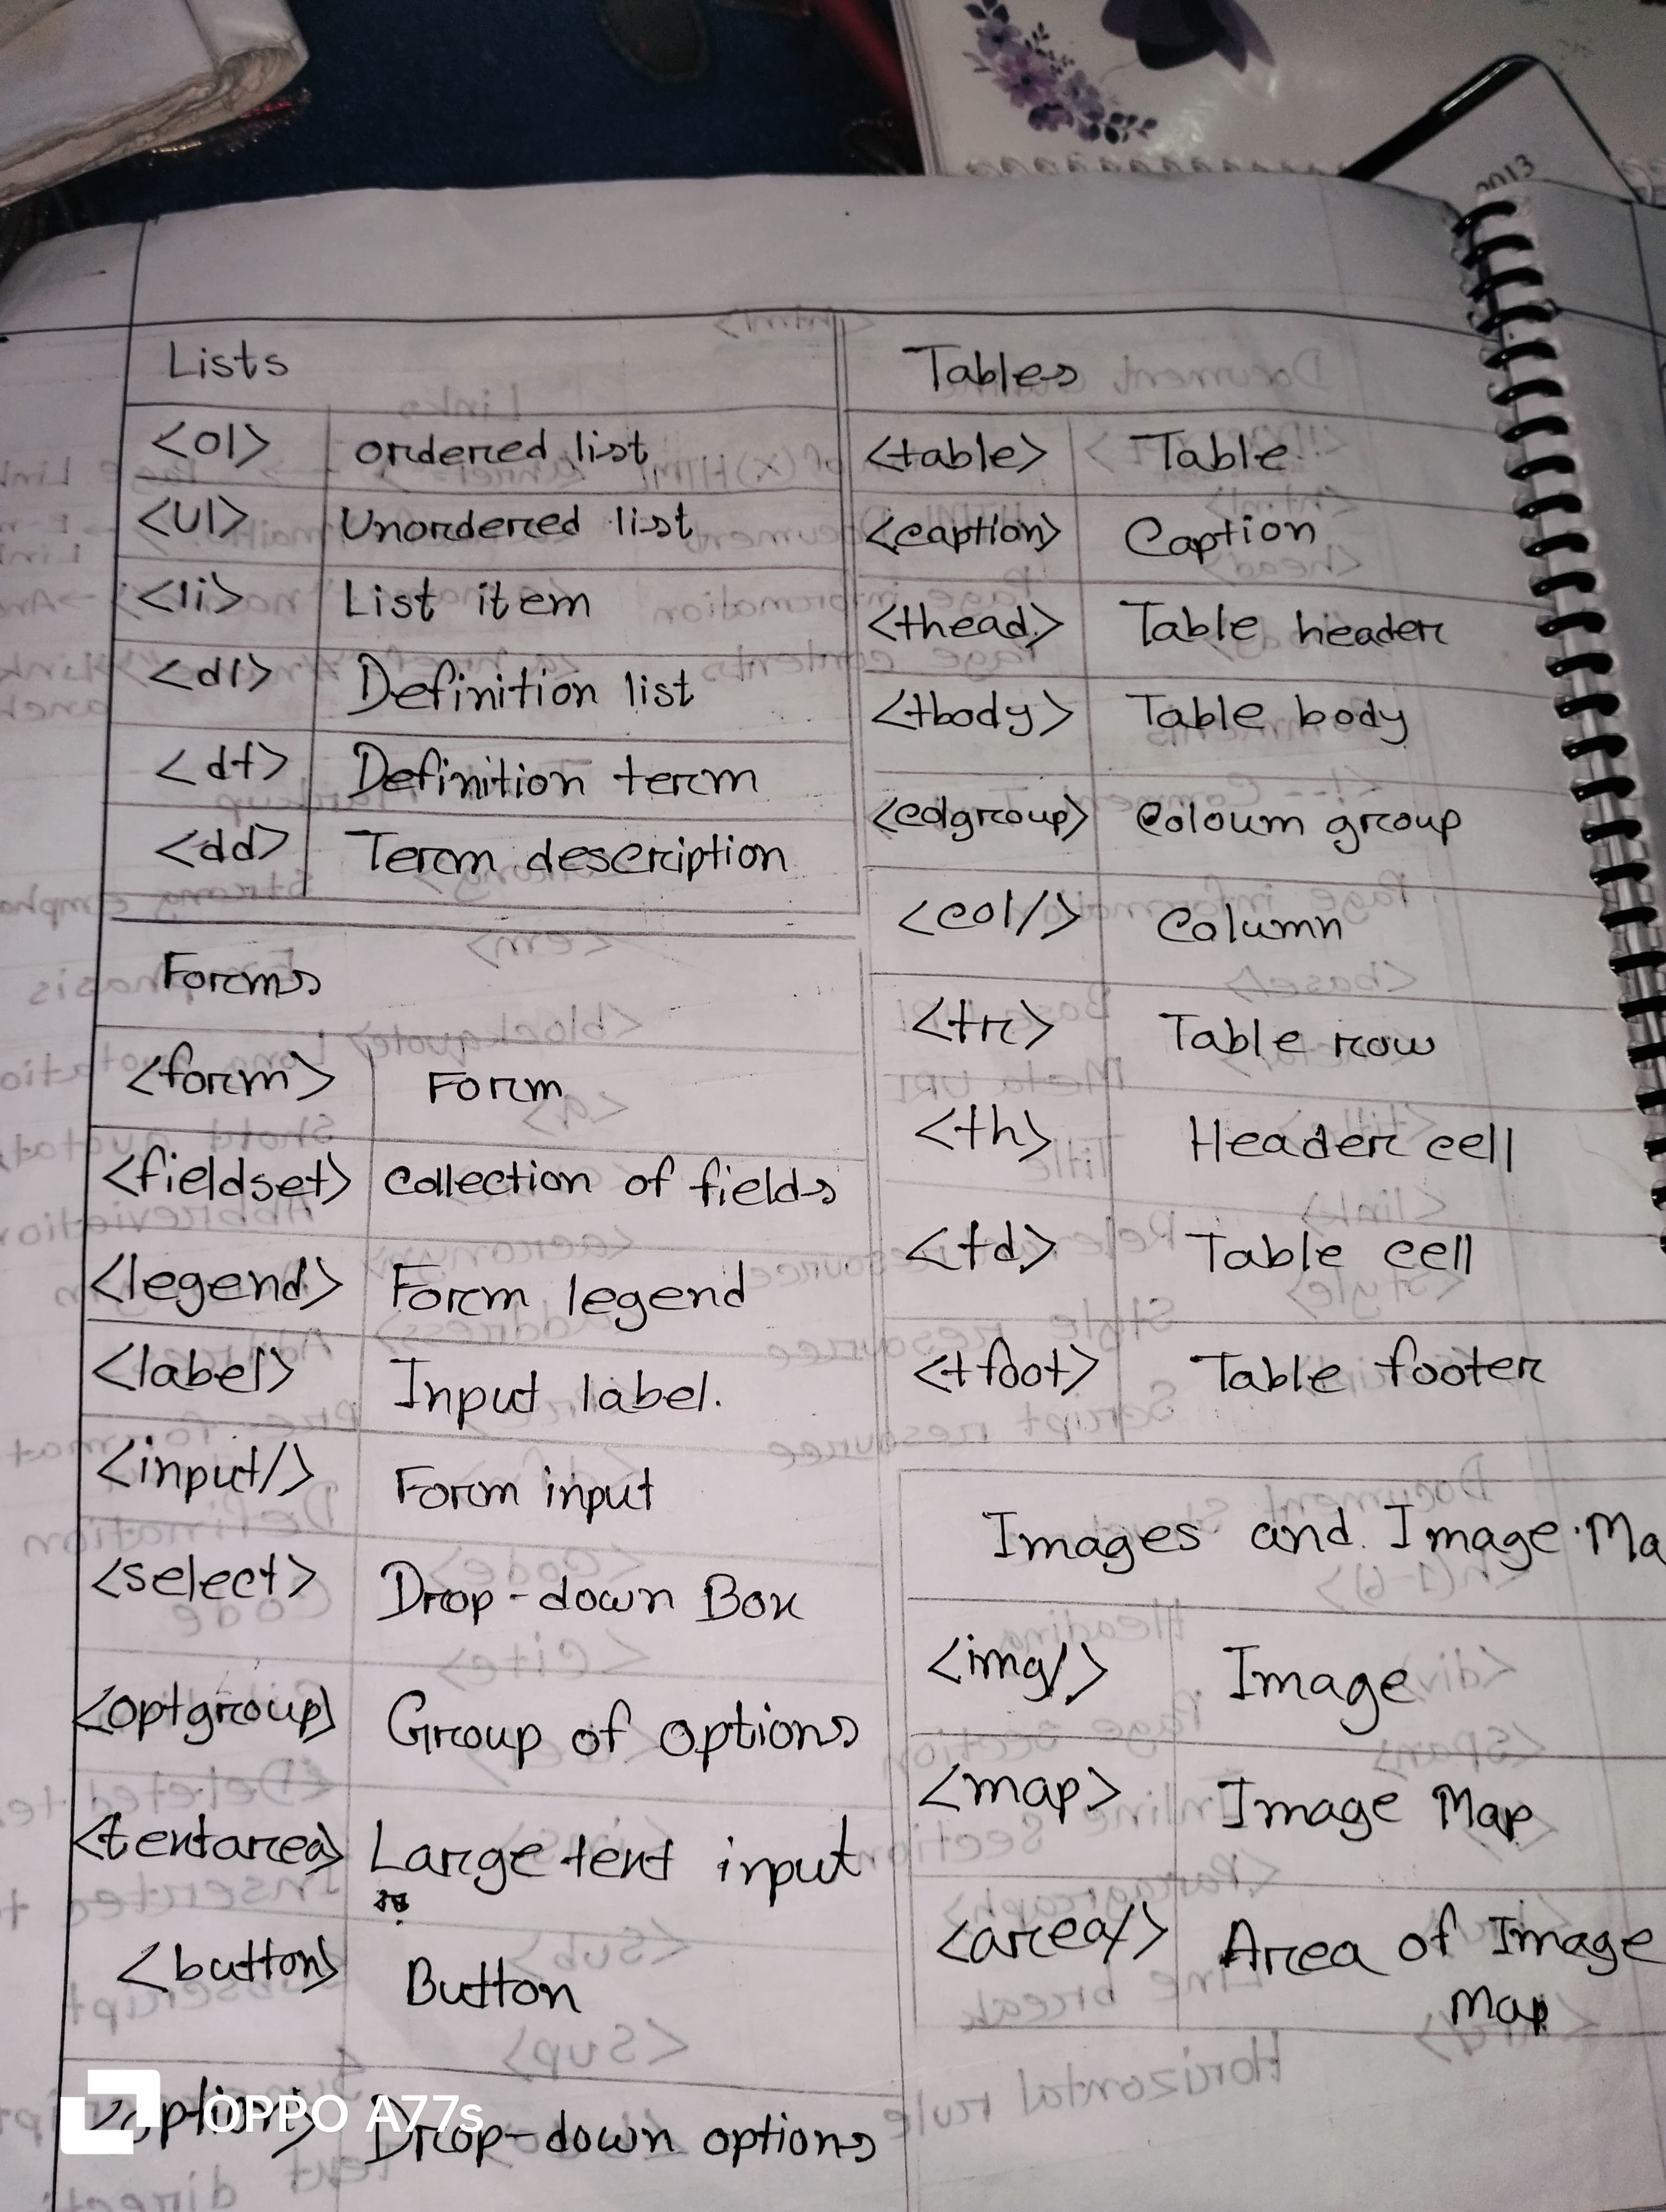 2013
Lists
<ol> ordered list
<ul> Unordered list
<li> List item
<dl> Definition list
<dt> Definition term
<dd> Term description
Forms
<form> Form
<fieldset> collection of fields
<legend> Form legend
<label> Input label.
<input/> Form input
<select> Drop-down Box
<optgroup> Group of options
<textarea> Large text input
<button> Button
<option> Drop-down options
Tables
<table> Table
<caption> Caption
<thead> Table header
<tbody> Table body
<colgroup> Coloum group
<col/> Column
<tr> Table row
<th> Header cell
<td> Table cell
<tfoot> Table footer
Images and Image Ma
<img/> Image
<map> Image Map
<area/> Area of Image
Map
OPPO A77s